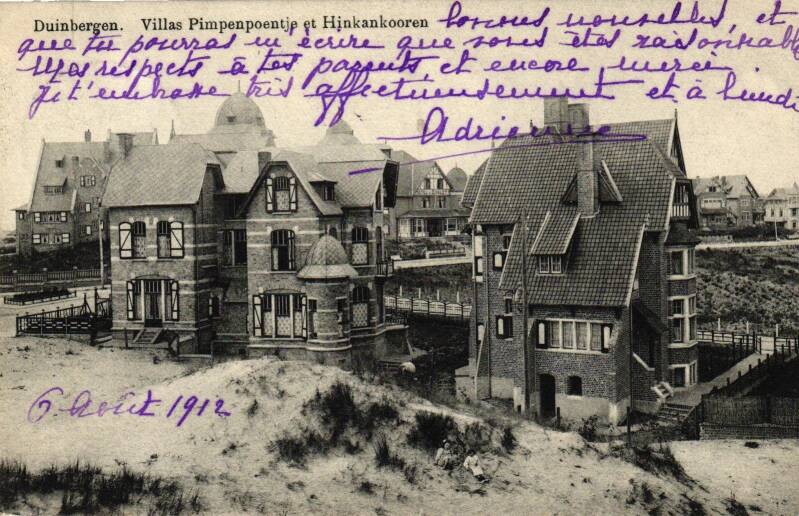 Duinbergen. Villas Pimpenpoentje et Hinkankooren
bonnes nouvelles, et
que tu pourras m'écrire que vous êtes raisonnable
Mes respects à tes parents, et encore merci
Je t'embrasse très affectueusement et à lundi
Adrienne
6 Août 1912